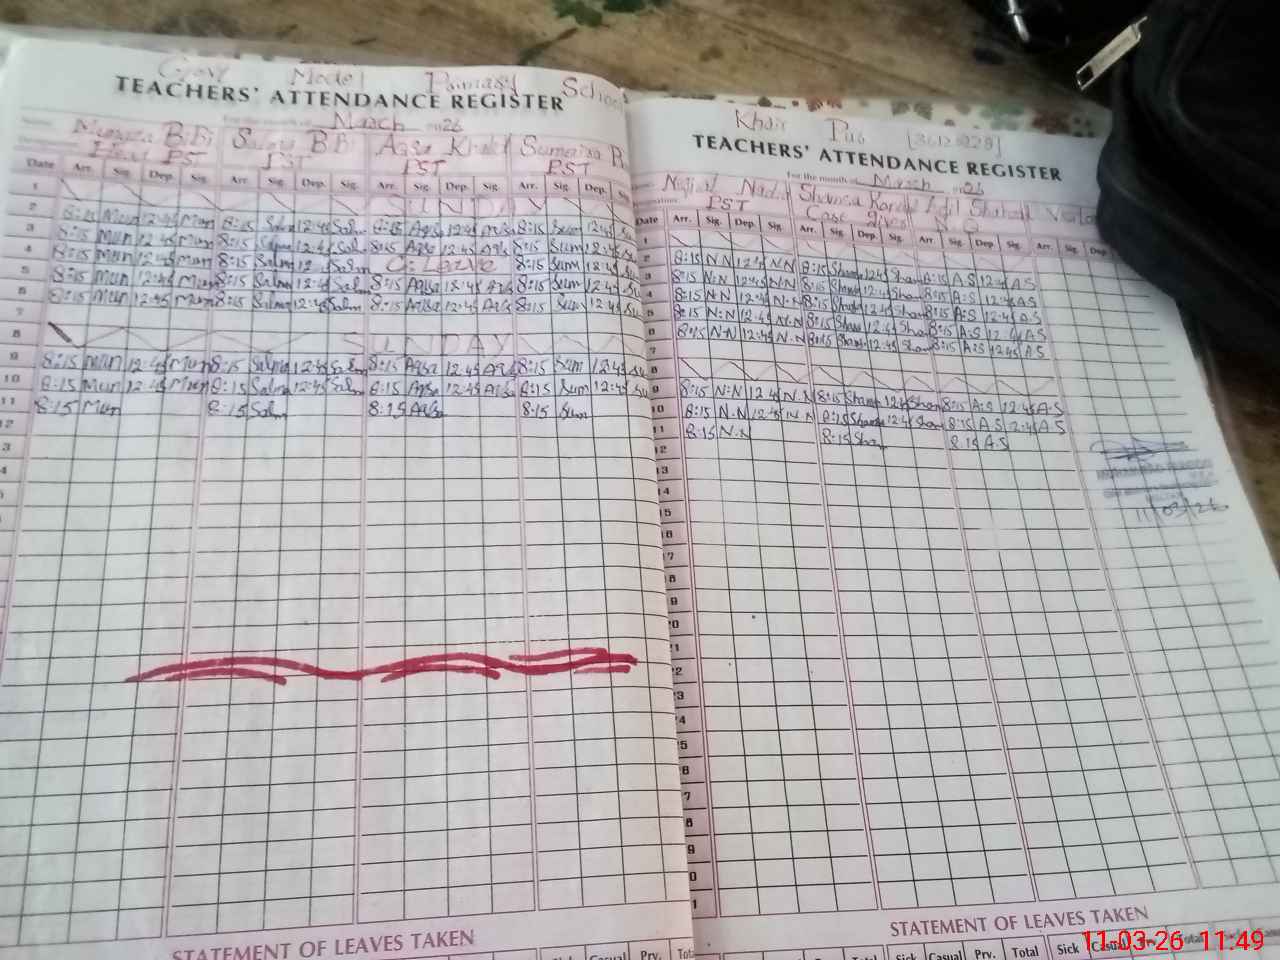 Govt Model Primary School
TEACHERS' ATTENDANCE REGISTER
For the month of March 26
BiBi Salma BiBi Aqsa Khalid Sumaira
Head PST PST PST PST
Date Arr. Sig. Dep. Sig. Arr. Sig. Dep. Sig. Arr. Sig. Dep. Sig. Arr. Sig. Dep. Sig.
1 SUNDAY
2 8:15 Mun 12:45 Mun 8:15 Salma 12:45 Salm 8:15 Aqsa 12:45 Aqsa 8:15 Sum 12:45 Su
3 8:15 Mun 12:45 Mun 8:15 Salma 12:45 Salm 8:15 Aqsa 12:45 Aqsa 8:15 Sum 12:45 Su
4 8:15 Mun 12:45 Mun 8:15 Salma 12:45 Salm C. Leave 8:15 Sum 12:45 Su
5 8:15 Mun 12:45 Mun 8:15 Salma 12:45 Salm 8:15 Aqsa 12:45 Aqsa 8:15 Sum 12:45 Su
6 8:15 Mun 12:45 Mun 8:15 Salma 12:45 Salm 8:15 Aqsa 12:45 Aqsa 8:15 Sum 12:45 Su
7
8 SUNDAY
9 8:15 Mun 12:45 Mun 8:15 Salma 12:45 Salm 8:15 Aqsa 12:45 Aqsa 8:15 Sum 12:45 Su
10 8:15 Mun 12:45 Mun 8:15 Salma 12:45 Salm 8:15 Aqsa 12:45 Aqsa 8:15 Sum 12:45 Su
11 8:15 Mun 8:15 Salm 8:15 Aqsa 8:15 Sum
12
3
4
STATEMENT OF LEAVES TAKEN
Sick Casual Prv. Total
Khair Pur
TEACHERS' ATTENDANCE REGISTER
For the month of March 26
Nadia Shamsa Adil
PST
Date Arr. Sig. Dep. Sig. Arr. Sig. Dep. Sig. Arr. Sig. Dep. Sig. Arr. Sig. Dep.
1
2 8:15 N.N 12:45 N.N 8:15 Sham 12:45 Sham 8:15 A.S 12:45 A.S
3 8:15 N.N 12:45 N.N 8:15 Sham 12:45 Sham 8:15 A.S 12:45 A.S
4 8:15 N.N 12:45 N.N 8:15 Sham 12:45 Sham 8:15 A.S 12:45 A.S
5 8:15 N.N 12:45 N.N 8:15 Sham 12:45 Sham 8:15 A.S 12:45 A.S
6 8:15 N.N 12:45 N.N 8:15 Sham 12:45 Sham 8:15 A.S 12:45 A.S
7
8
9 8:15 N.N 12:45 N.N 8:15 Sham 12:45 Sham 8:15 A.S 12:45 A.S
10 8:15 N.N 12:45 N.N 8:15 Sham 12:45 Sham 8:15 A.S 12:45 A.S
11 8:15 N.N 8:15 Sha 8:15 A.S
12
13
14
15
16
17
18
9
20
21
22
23
24
25
8
7
8
9
0
1
11/03/26
STATEMENT OF LEAVES TAKEN
Sick Casual Prv. Total Sick Casual Prv. Total
11.03-26 11:49